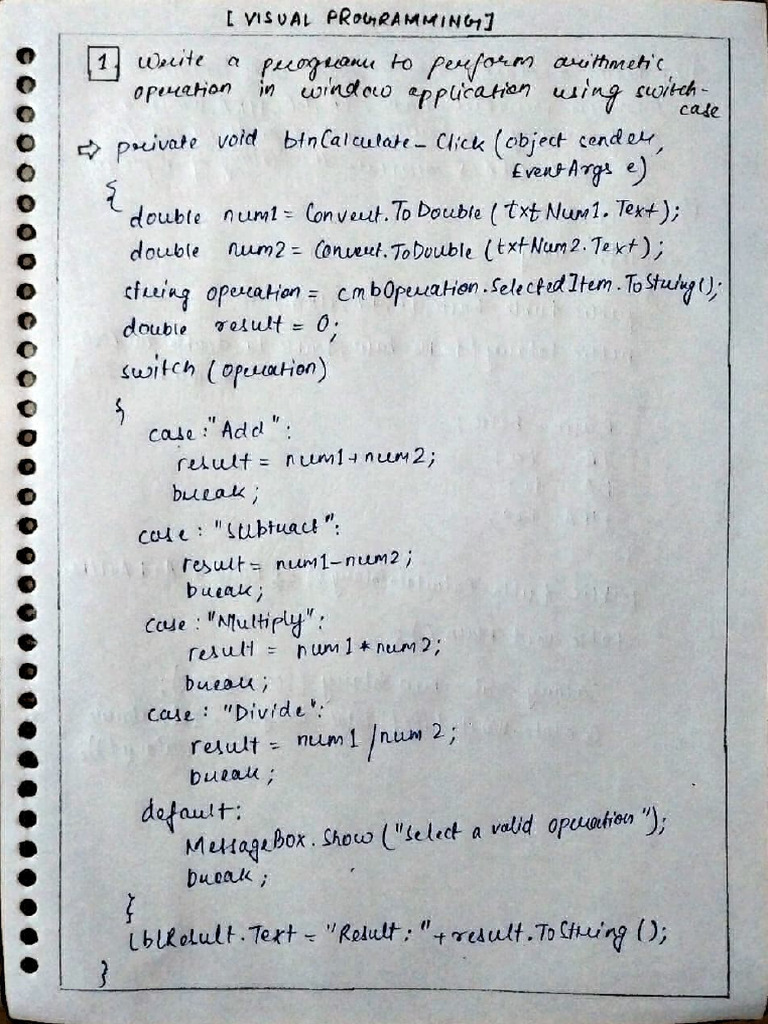 [ VISUAL PROGRAMMING ]
1 Write a program to perform arithmetic
operation in window application using switch-
case
⇨ private void btnCalculate_Click (object sender,
EventArgs e)
{
double num1 = Convert.ToDouble (txtNum1.Text);
double num2 = Convert.ToDouble (txtNum2.Text);
string operation = cmbOperation.SelectedItem.ToString();
double result = 0;
switch (operation)
{
case : "Add" :
result = num1 + num2;
break;
case : "Subtract":
result = num1 - num2;
break;
case : "Multiply":
result = num1 * num2;
break;
case : "Divide":
result = num1 / num2;
break;
default:
MessageBox.Show ("Select a valid operation");
break;
{
lblResult.Text = "Result: " + result.ToString ();
}